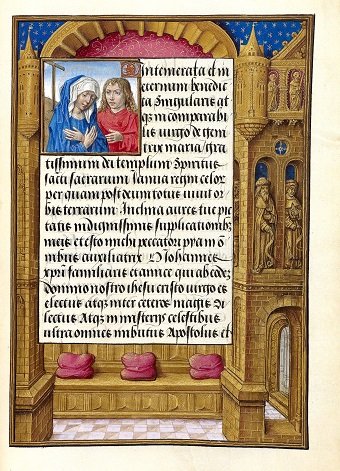 Intemerata et in
eternum benedic
ta Singularis at
qz in comparabi
lis virgo dei geni
trix maria / gra
tissimum dei templum Spiritus
sacti sacrarum Ianua regni celor
per quam post deum totus viuit or
bis terrarum Inclina aures tue pie
tatis indignissimis supplicationibus
meis et esto michi peccatori pia in o
nibus auxiliatrix O Iohannes
xpri familiaris et amice qui ab eodez
domino nostro ihesu cristo virgo es
electus atqz inter ceteros magis di
lectus Atqz in misterijs celestibus
ultra omnes imbutus Apostolus et